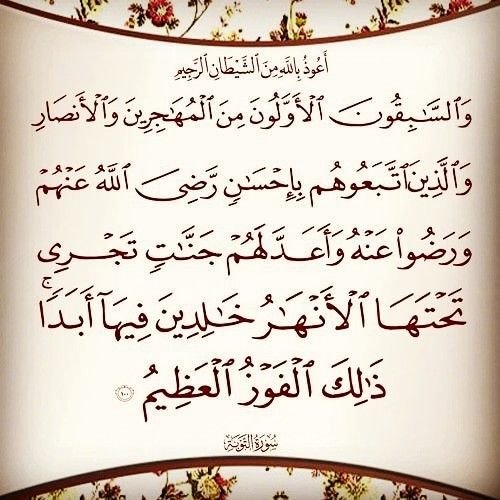 أَعُوذُ بِٱللَّهِ مِنَ ٱلشَّيْطَانِ ٱلرَّجِيمِ
وَٱلسَّٰبِقُونَ ٱلْأَوَّلُونَ مِنَ ٱلْمُهَٰجِرِينَ وَٱلْأَنصَارِ
وَٱلَّذِينَ ٱتَّبَعُوهُم بِإِحْسَٰنٍ رَّضِىَ ٱللَّهُ عَنْهُمْ
وَرَضُوا۟ عَنْهُ وَأَعَدَّ لَهُمْ جَنَّٰتٍ تَجْرِى
تَحْتَهَا ٱلْأَنْهَٰرُ خَٰلِدِينَ فِيهَآ أَبَدًا ۚ
ذَٰلِكَ ٱلْفَوْزُ ٱلْعَظِيمُ ١٠٠
سُورَةُ التَّوْبَةِ